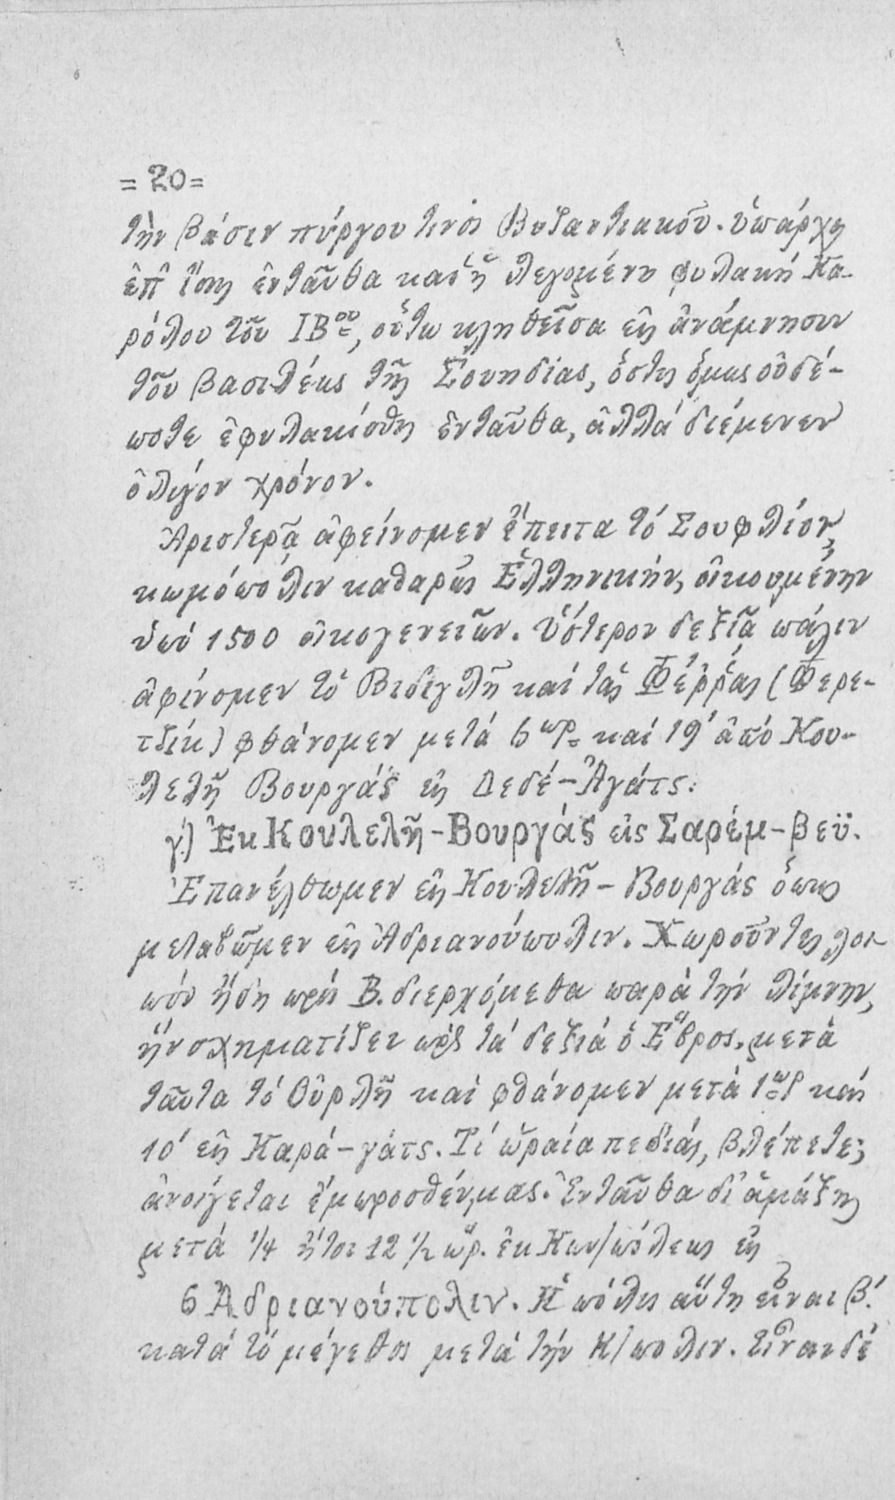 =20=
τὴν βάσιν πύργου τινὸς Βυζαντιακοῦ. ὑπάρχει
ἐπ' ἴσης ἐνταῦθα καὶ ἡ λεγομένη φυλακή Κα-
ρόλου τοῦ ΙΒου, οὕτω κληθεῖσα εἰς ἀνάμνησιν
τοῦ βασιλέως τῆς Σουηδίας, ὅστις ὅμως οὐδέ-
ποτε ἐφυλακίσθη ἐνταῦθα, ἀλλά διέμενεν
ὀλίγον χρόνον.
Ἀριστερᾷ ἀφείνομεν ἔπειτα τό Σουφλίον,
κωμόπολιν καθαρῶς Ἑλληνικήν, οἰκουμένην
ὑπό 1500 οἰκογενειῶν. Ὕστερον δεξιᾷ πάλιν
ἀφίνομεν τὸ Βιδιγλῆ καί τάς Φέρρας (Φερε-
τζίκ) φθάνομεν μετά 6 ὡρ. καί 19' ἀπό Κου-
λελῆ Βουργάς εἰς Δεδέ-Ἀγάτς.
γ.) Ἐκ Κουλελῆ-Βουργάς εἰς Σαρέμ-βεϋ.
Ἐπανέλθωμεν εἰς Κουλελῆ-Βουργάς ὅπως
μεταβῶμεν εἰς Ἀδριανούπολιν. Χωροῦντες λοι
πόν ἤδη πρός Β. διερχόμεθα παρὰ τήν λίμνην,
ἥν σχηματίζει πρὸς τά δεξιά ὁ Ἕβρος. μετὰ
ταῦτα τό Οὐρλῆ καὶ φθάνομεν μετὰ 1 ὥρ καί
10' εἰς Καρά-γάτς. Τί ὡραία πεδιάς, βλέπετε;
ἀνοίγεται ἔμπροσθέν μας. Ἐνταῦθα δι' ἁμάξης
μετά 1/4 ἤτοι 12 1/2 ὥρ. ἐκ Κων/πόλεως εἰς
6 Ἀδριανούπολιν. Ἡ πόλις αὕτη εἶναι β.'
κατά τό μέγεθος μετά τήν Κ/πολιν. Εἶναι δὲ